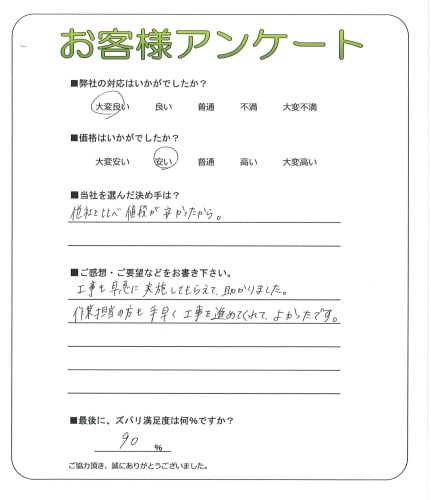 お客様アンケート
■弊社の対応はいかがでしたか？
大変良い 良い 普通 不満 大変不満
■価格はいかがでしたか？
大変安い 安い 普通 高い 大変高い
■当社を選んだ決め手は？
他社と比べ値段が安かったから。
■ご感想・ご要望などをお書き下さい。
工事も早急に実施してもらえて、助かりました。
作業担当の方も手早く工事を進めてくれて、よかったです。
■最後に、ズバリ満足度は何％ですか？
90 ％
ご協力頂き、誠にありがとうございました。